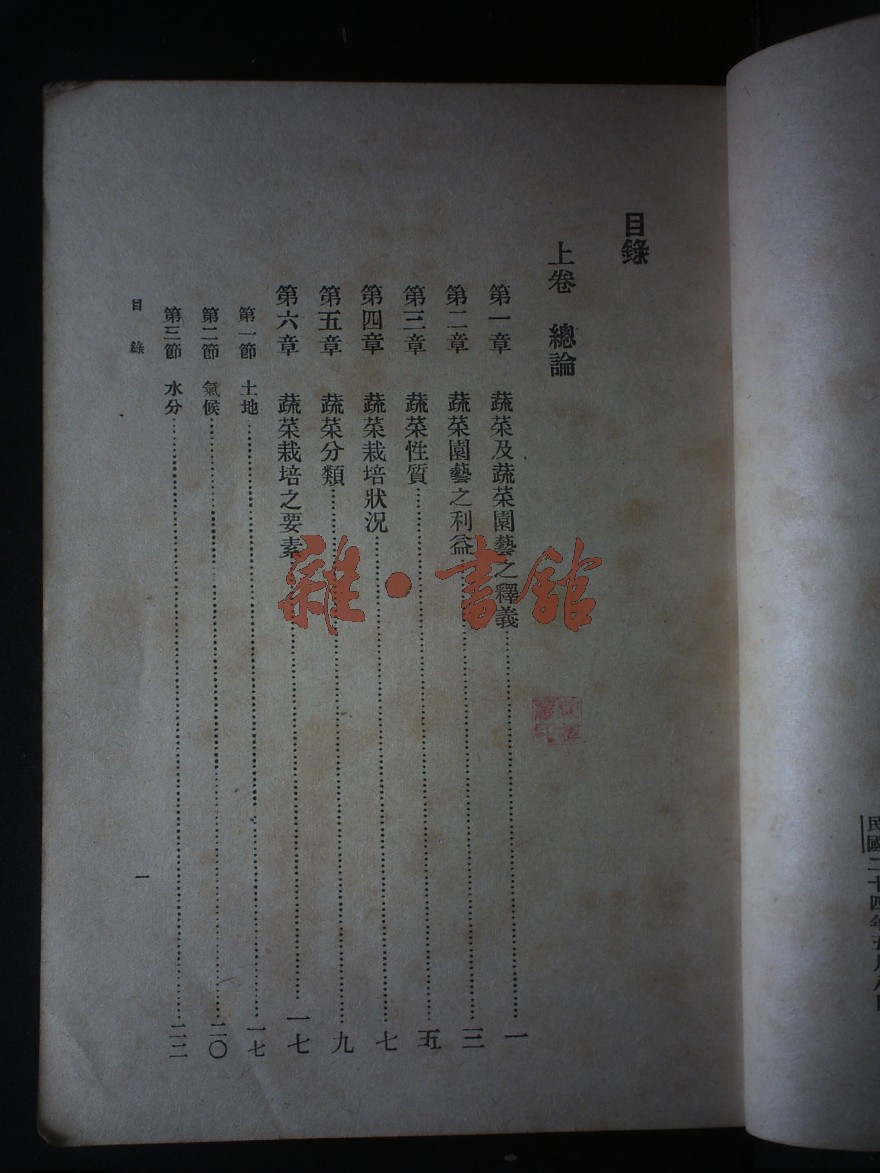 民國二十四年五月八日
目錄
上卷 總論
第一章 蔬菜及蔬菜園藝之釋義……一
第二章 蔬菜園藝之利益……三
第三章 蔬菜性質……五
第四章 蔬菜栽培狀況……七
第五章 蔬菜分類……九
第六章 蔬菜栽培之要素……一七
第一節 土地……一七
第二節 氣候……二〇
第三節 水分……二二
目錄 一
雜·書館